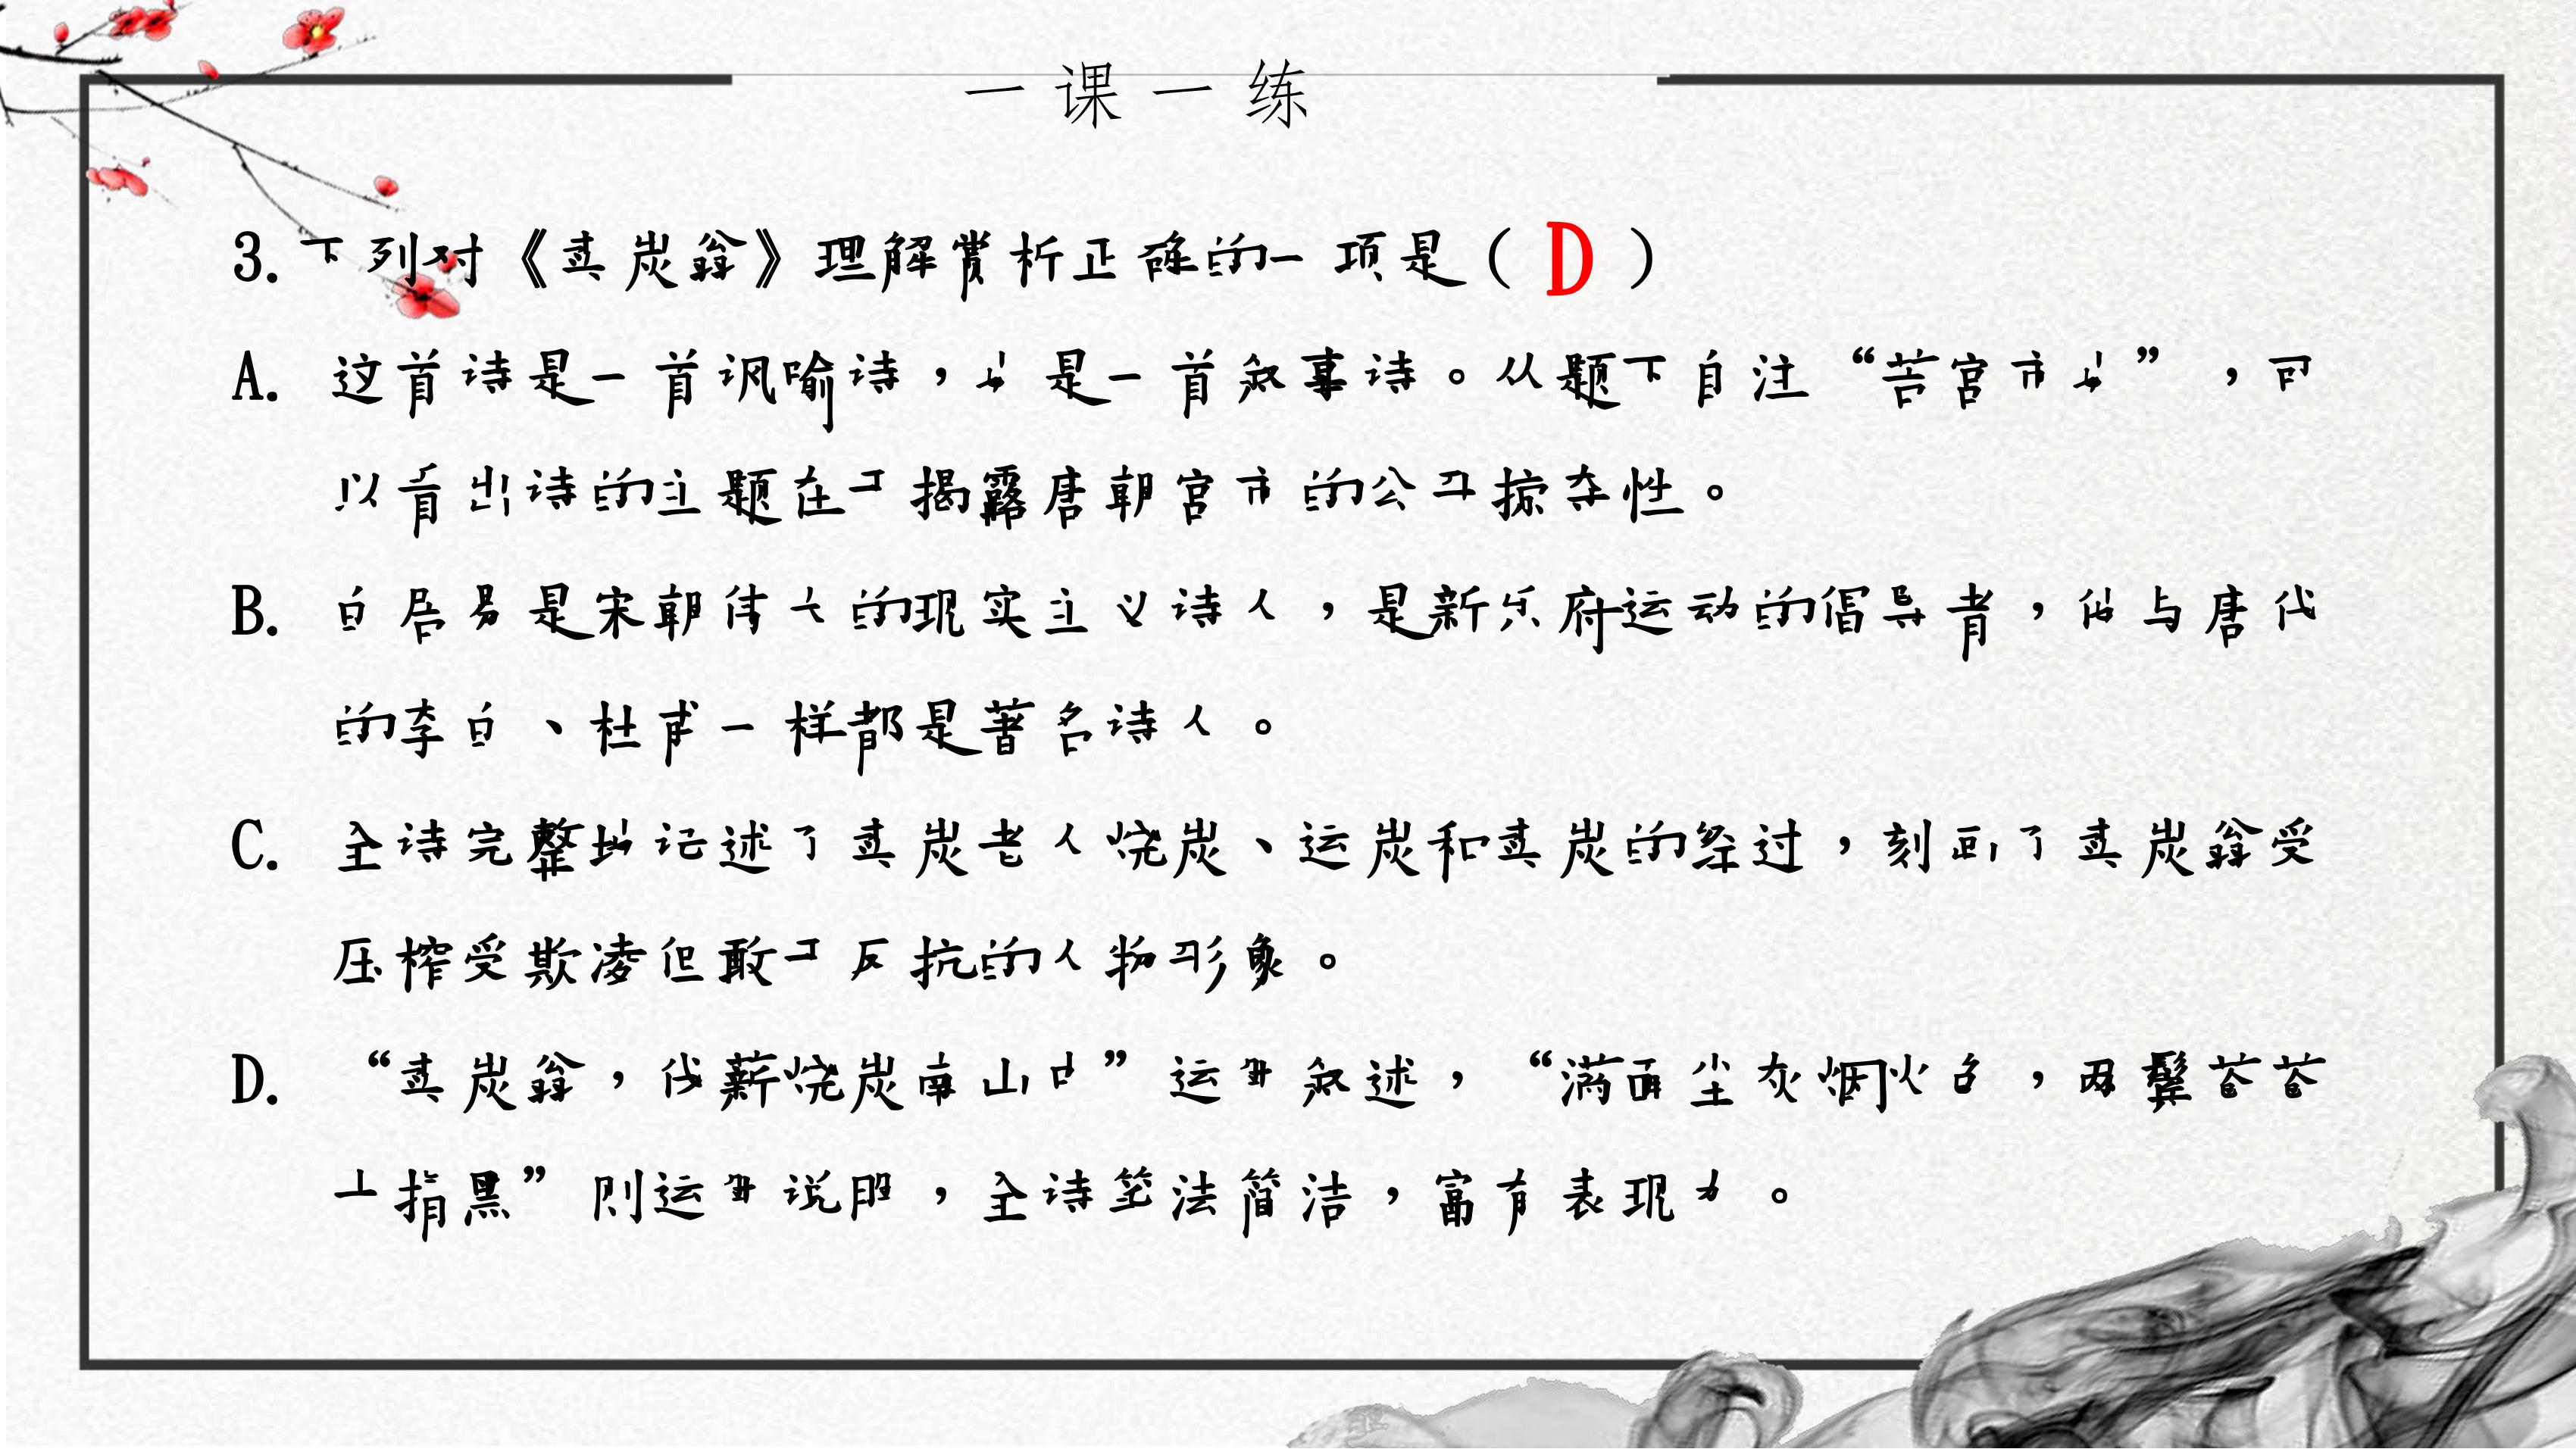 一课一练
3.下列对《卖炭翁》理解赏析正确的一项是（ D ）
A. 这首诗是一首讽喻诗，也是一首叙事诗。从题下自注“苦宫市也”，可
以看出诗的主题在于揭露唐朝宫市的公开掠夺性。
B. 白居易是宋朝伟大的现实主义诗人，是新乐府运动的倡导者，他与唐代
的李白、杜甫一样都是著名诗人。
C. 全诗完整地记述了卖炭老人烧炭、运炭和卖炭的经过，刻画了卖炭翁受
压榨受欺凌但敢于反抗的人物形象。
D. “卖炭翁，伐薪烧炭南山中”运用叙述，“满面尘灰烟火色，两鬓苍苍
十指黑”则运用说明，全诗笔法简洁，富有表现力。